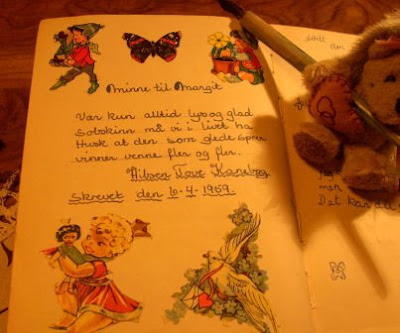 Minne til Margit
Vær kun alltid lys og glad
Solskinn må vi i livet ha
Husk at den som glede sprer
vinner venne fler og fler.
Hilsen Tove
Skrevet den 10-4-1959.
men
Det kan